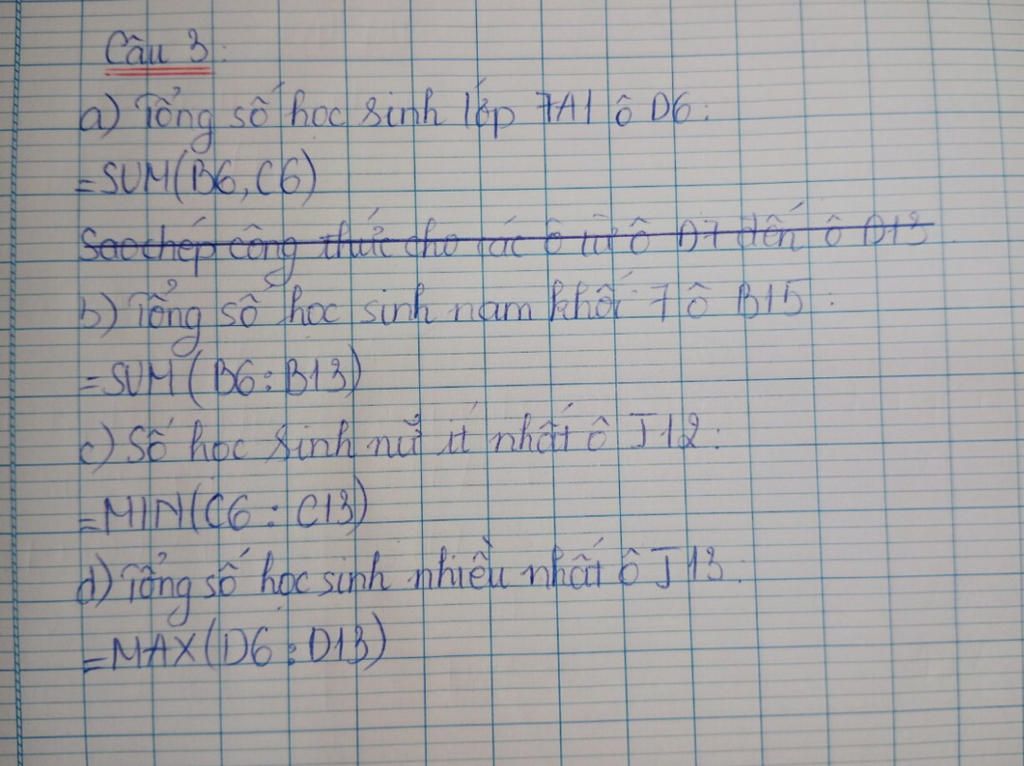 Câu 3:
a) Tổng số học sinh lớp 7A1 ô D6:
=SUM(B6,C6)
Sao chép công thức cho các ô từ ô D7 đến ô D13
b) Tổng số học sinh nam khối 7 ô B15:
=SUM(B6:B13)
c) Số học sinh nữ ít nhất ô J12:
=MIN(C6:C13)
d) Tổng số học sinh nhiều nhất ô J13:
=MAX(D6:D13)